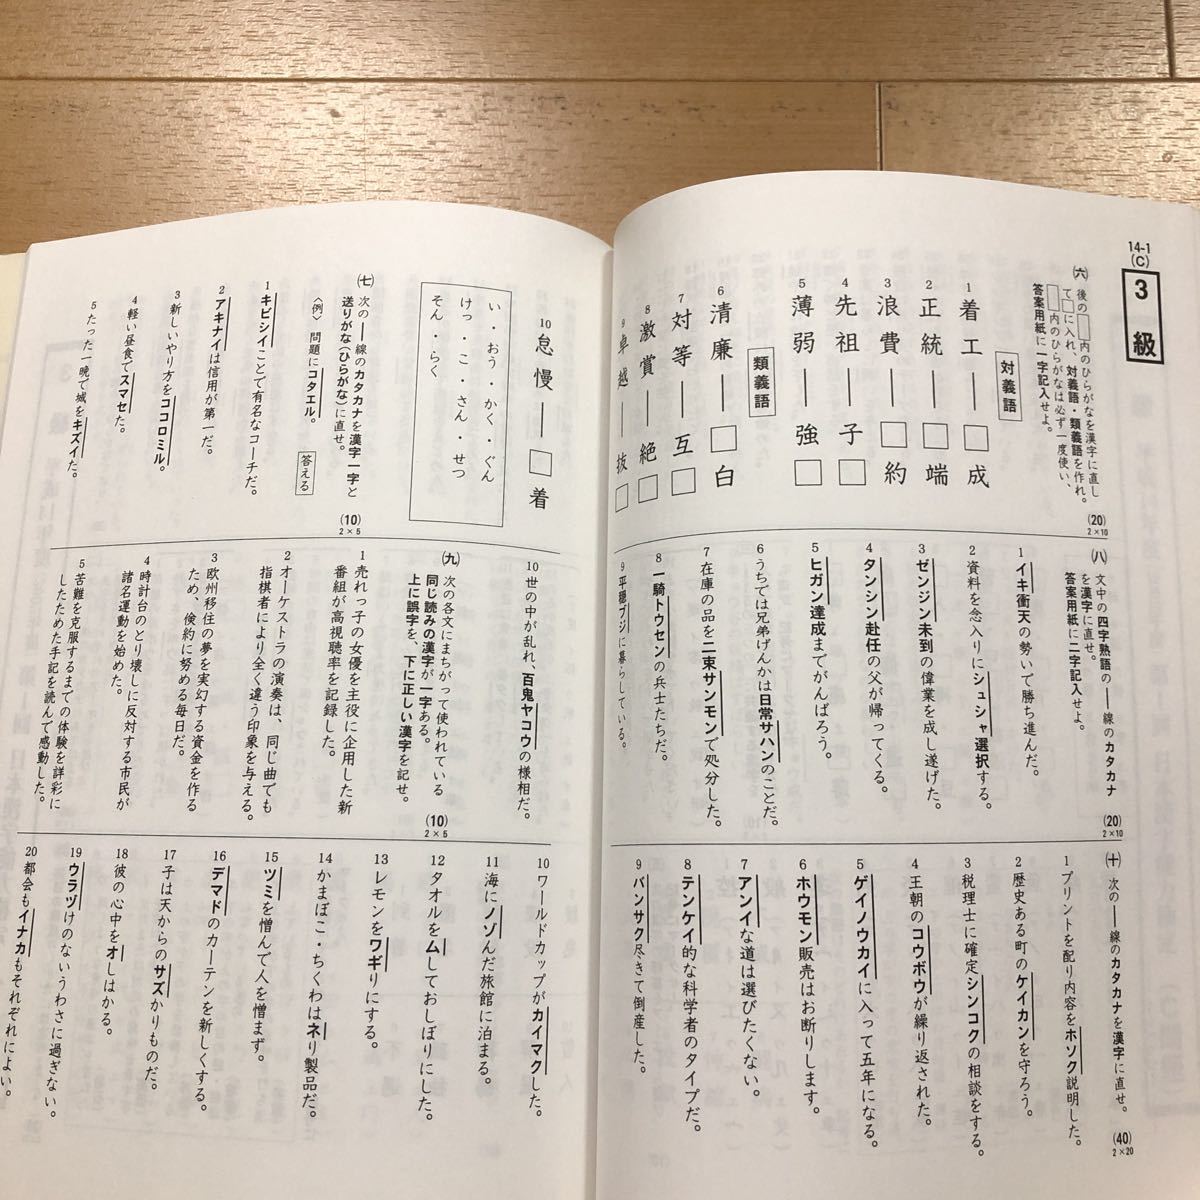 14-1
(C)
3級
㈥ 後の□内のひらがなを漢字に直し
て□に入れ、対義語・類義語を作れ。
□内のひらがなは必ず一度使い、
答案用紙に一字記入せよ。
(20)
2×10
対義語
1 着工――□成
2 正統――□端
3 浪費――□約
4 先祖――子□
5 薄弱――強□
類義語
6 清廉――□白
7 対等――互□
8 激賞――絶□
9 卓越――抜□
10 怠慢――□着
い・おう・かく・ぐん
けっ・こ・さん・せつ
そん・らく
㈦ 次の――線のカタカナを漢字一字と
送りがな(ひらがな)に直せ。
〈例〉問題にコタエル。 答える
(10)
2×5
1 キビシイことで有名なコーチだ。
2 アキナイは信用が第一だ。
3 新しいやり方をココロミル。
4 軽い昼食でスマセた。
5 たった一晩で城をキズイた。
㈧ 文中の四字熟語の――線のカタカナ
を漢字に直せ。
答案用紙に二字記入せよ。
(20)
2×10
1 イキ衝天の勢いで勝ち進んだ。
2 資料を念入りにシュシャ選択する。
3 ゼンジン未到の偉業を成し遂げた。
4 タンシン赴任の父が帰ってくる。
5 ヒガン達成までがんばろう。
6 うちでは兄弟げんかは日常サハンのことだ。
7 在庫の品を二束サンモンで処分した。
8 一騎トウセンの兵士たちだ。
9 平穏ブジに暮らしている。
10 世の中が乱れ、百鬼ヤコウの様相だ。
㈨ 次の各文にまちがって使われている
同じ読みの漢字が一字ある。
上に誤字を、下に正しい漢字を記せ。
(10)
2×5
1 売れっ子の女優を主役に企用した新
番組が高視聴率を記録した。
2 オーケストラの演奏は、同じ曲でも
指棋者により全く違う印象を与える。
3 欧州移住の夢を実幻する資金を作る
ため、倹約に努める毎日だ。
4 時計台のとり壊しに反対する市民が
諸名運動を始めた。
5 苦難を克服するまでの体験を詳彩に
したためた手記を読んで感動した。
㈩ 次の――線のカタカナを漢字に直せ。
(40)
2×20
1 プリントを配り内容をホソク説明した。
2 歴史ある町のケイカンを守ろう。
3 税理士に確定シンコクの相談をする。
4 王朝のコウボウが繰り返された。
5 ゲイノウカイに入って五年になる。
6 ホウモン販売はお断りします。
7 アンイな道は選びたくない。
8 テンケイ的な科学者のタイプだ。
9 バンサク尽きて倒産した。
10 ワールドカップがカイマクした。
11 海にノゾんだ旅館に泊まる。
12 タオルをムしておしぼりにした。
13 レモンをワギりにする。
14 かまぼこ・ちくわはネり製品だ。
15 ツミを憎んで人を憎まず。
16 デマドのカーテンを新しくする。
17 子は天からのサズかりものだ。
18 彼の心中をオしはかる。
19 ウラヅけのないうわさに過ぎない。
20 都会もイナカもそれぞれによい。